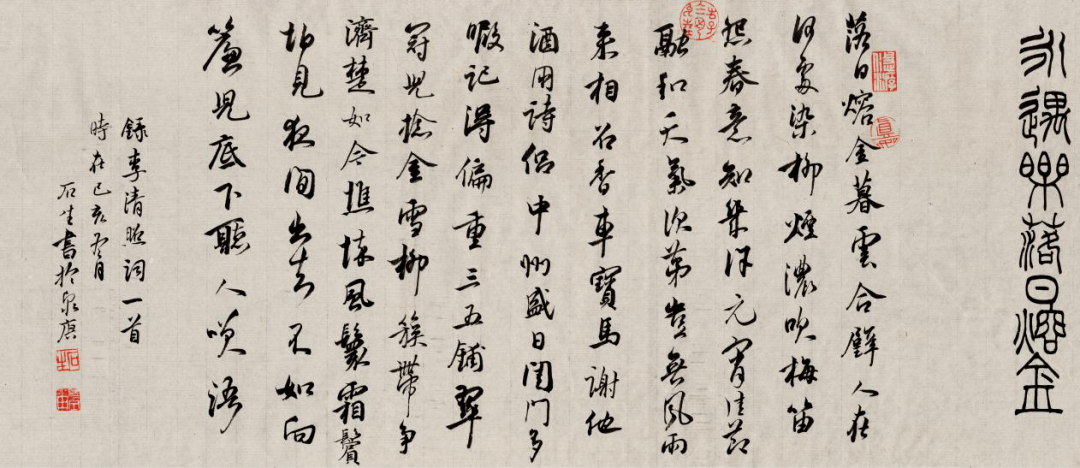 永遇樂落日熔金
落日熔金暮雲合璧人在
何處染柳煙濃吹梅笛
怨春意知幾許元宵佳節
融和天氣次第豈無風雨
來相召香車寶馬謝他
酒朋詩侶中州盛日閨門多
暇記得偏重三五鋪翠
冠兒捻金雪柳簇帶爭
濟楚如今憔悴風鬟霜鬢
怕見夜間出去不如向
簾兒底下聽人笑語
錄李清照詞一首
時在己亥冬月
石生書於泉唐